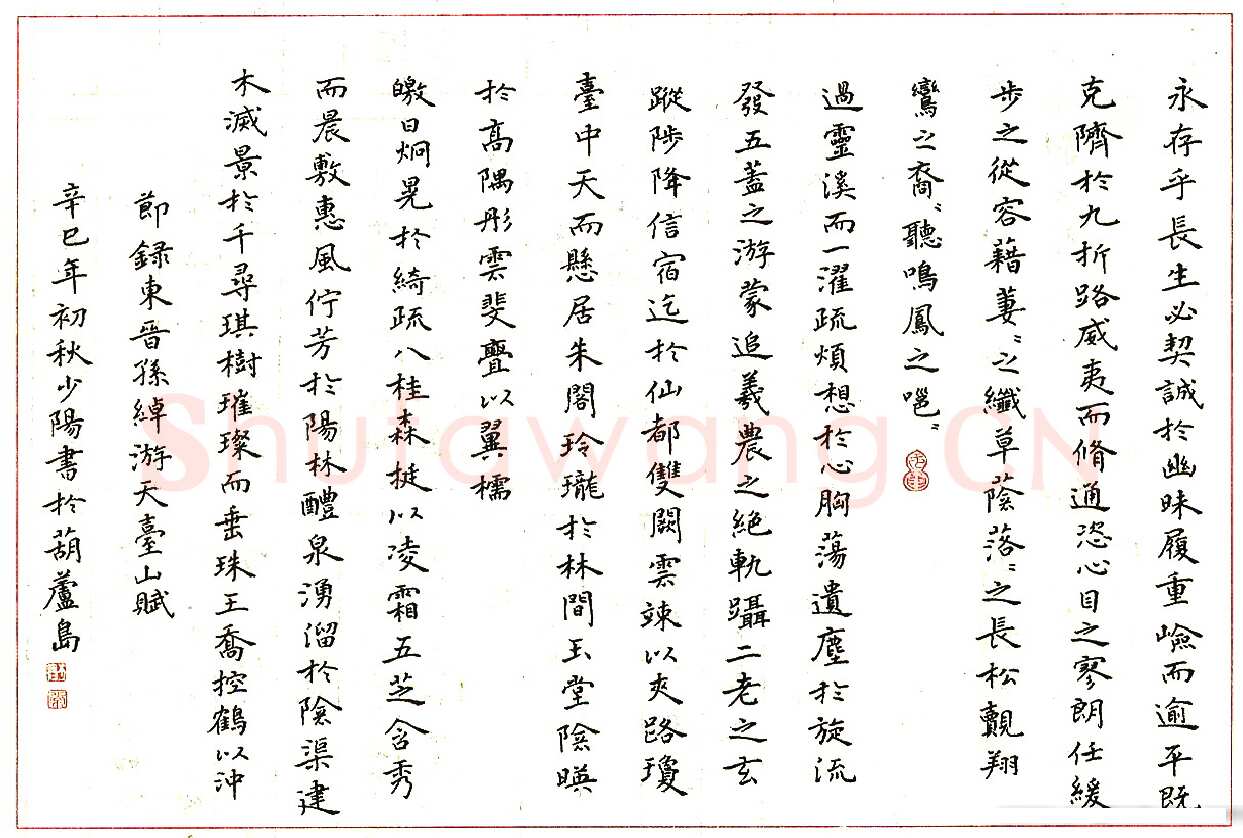 永存乎長生必契誠於幽昧履重嶮而逾平既
克隮於九折路威夷而脩通恣心目之寥朗任緩
步之從容藉萋〻之纖草蔭落〻之長松覿翔
鸞之裔〻聽鳴鳳之嗈〻
過靈溪而一濯疏煩想於心胸蕩遺塵於旋流
發五蓋之游蒙追羲農之絕軌躡二老之玄
蹤陟降信宿迄於仙都雙闕雲竦以夾路瓊
臺中天而懸居朱閣玲瓏於林間玉堂陰暎
於高隅彤雲斐亹以翼櫺
皦日烱晃於綺疏八桂森挺以凌霜五芝含秀
而晨敷惠風佇芳於陽林醴泉湧溜於陰渠建
木滅景於千尋琪樹璀璨而垂珠王喬控鶴以沖
節錄東晉孫綽游天臺山賦
辛巳年初秋少陽書於葫蘆島
Shufawang.CN